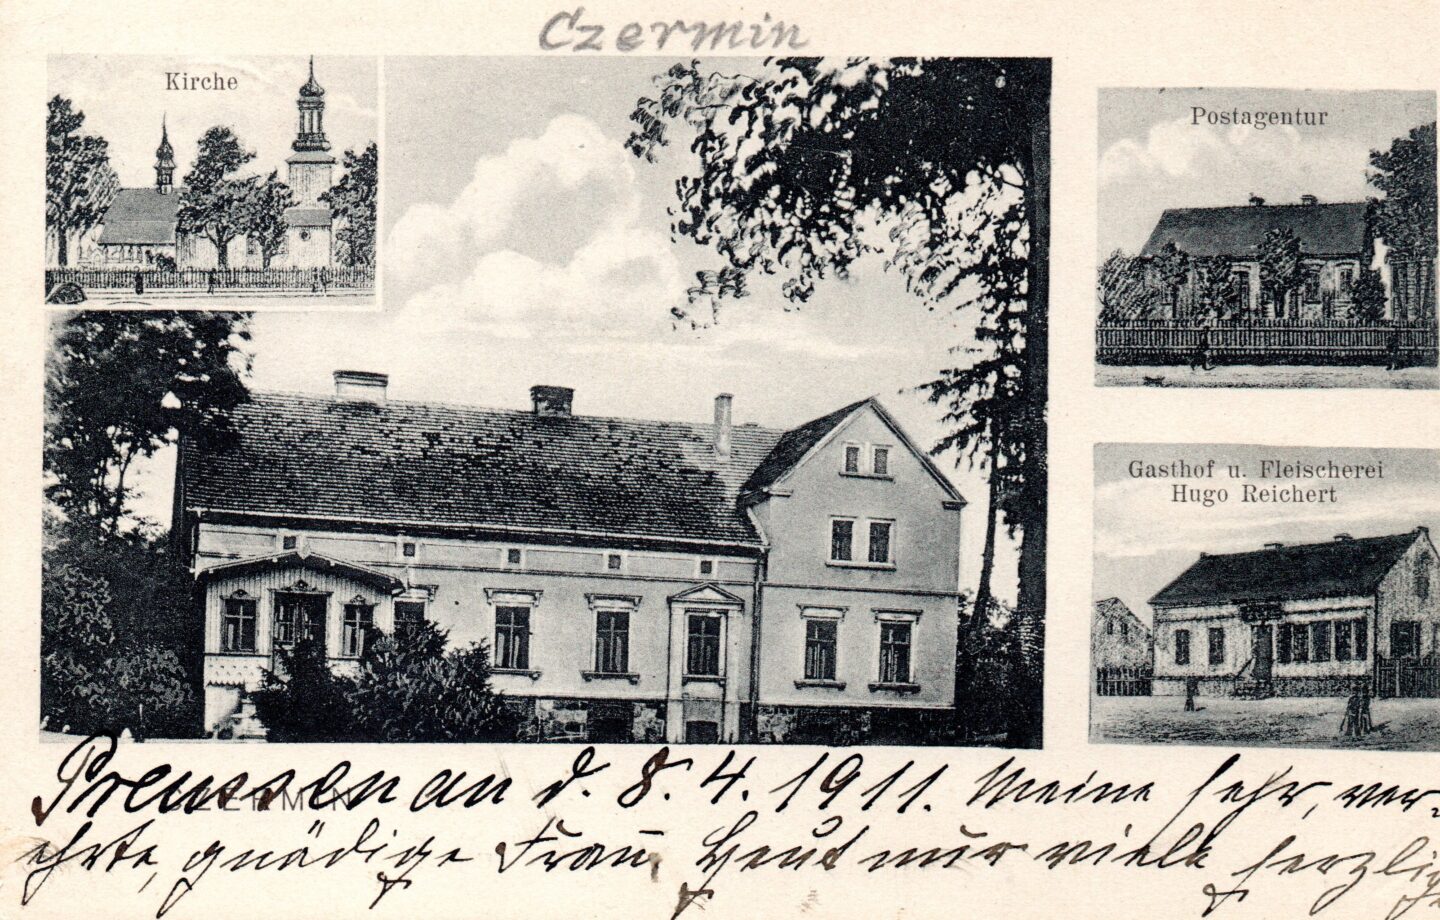 Czermin
Kirche
Postagentur
Gasthof u. Fleischerei
Hugo Reichert
Preussenau d. 8.4.1911. Meine sehr, ver-
ehrte, gnädige Frau, Heut nur viele herzlig